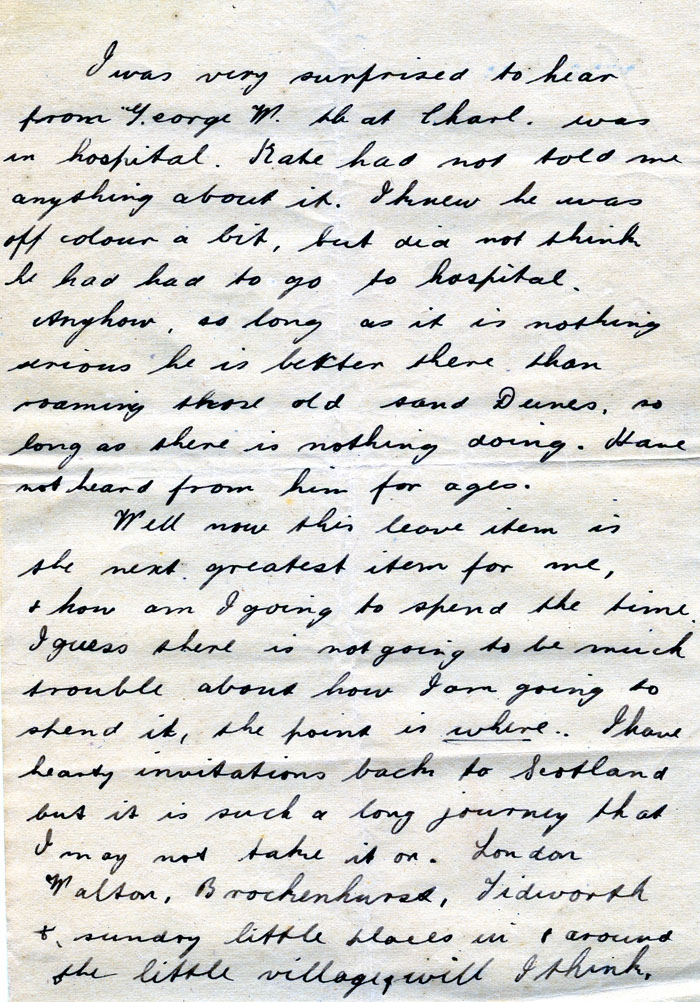 I was very surprised to hear
from George W. that Charl. was
in hospital. Kate had not told me
anything about it. I knew he was
off colour a bit, but did not think
he had had to go to hospital.
Anyhow, so long as it is nothing
serious he is better there than
roaming those old sand Dunes, so
long as there is nothing doing. Have
not heard from him for ages.
Well now this leave item is
the next greatest item for me,
& how am I going to spend the time.
I guess there is not going to be much
trouble about how I am going to
spend it, the point is where.. I have
hearty invitations back to Scotland
but it is such a long journey that
I may not take it on. London
Walton, Brockenhurst, Tidworth
&, sundry little places in & around
the little villages, will I think,